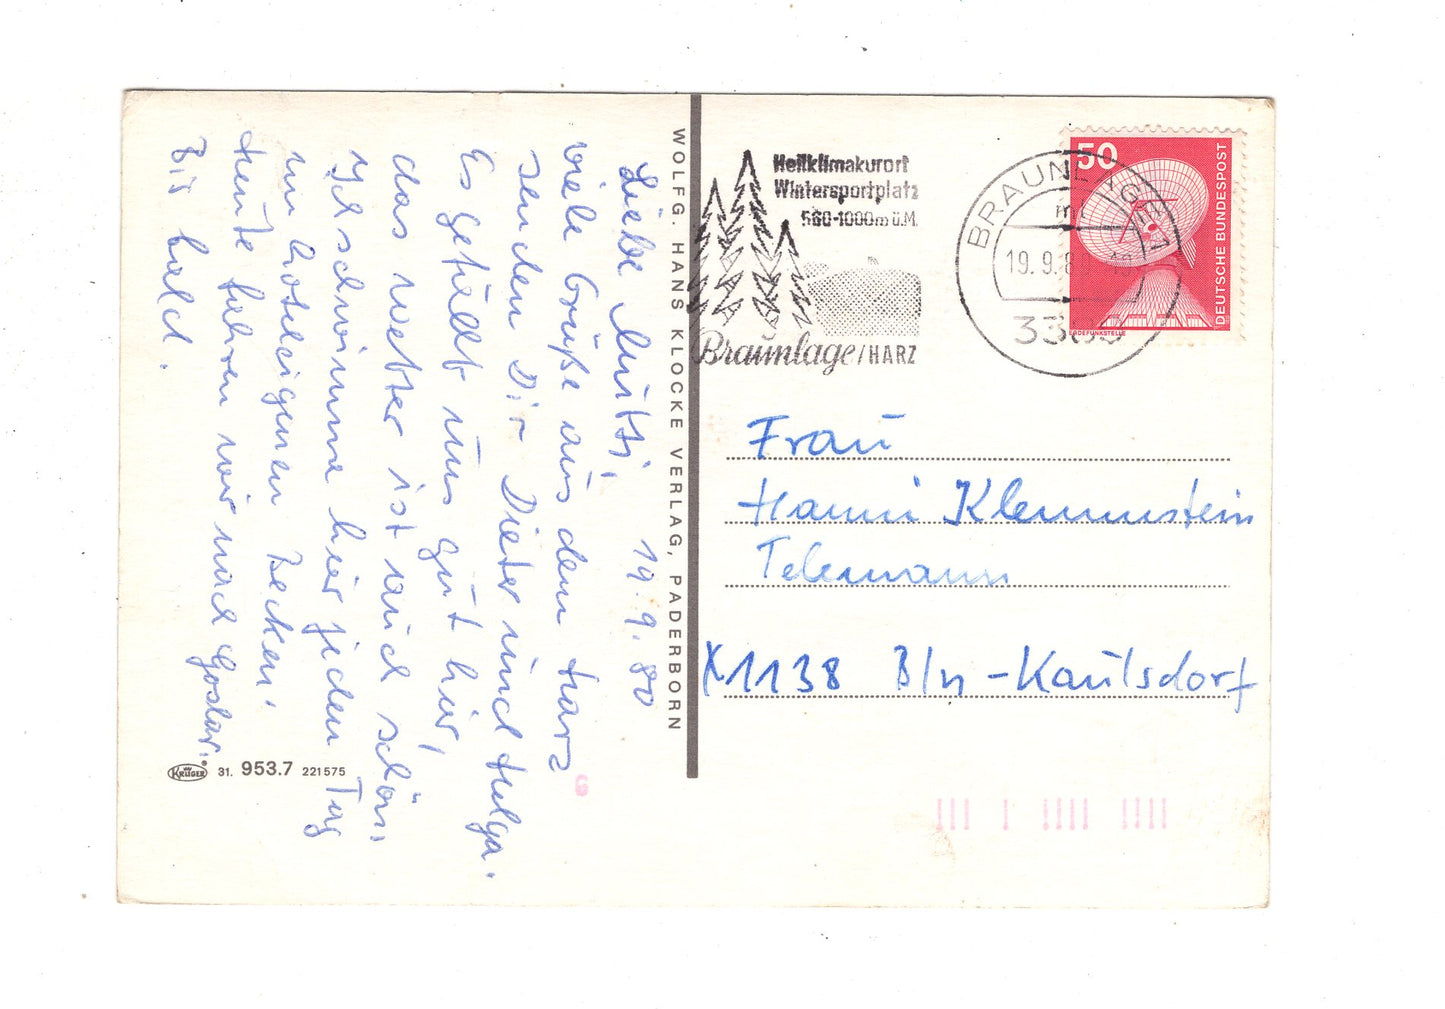 Liebe Mutti, 19.9.80
viele Grüße aus dem Harz
senden Dir Dieter und Helga.
Es gefällt uns gut hier,
das Wetter ist auch schön,
Ich schwimme hier jeden Tag
im hoteleigenen Becken.
Heute fahren wir nach Goslar.
Bis bald.
KRÜGER 31. 953.7 221575
WOLFG. HANS KLOCKE VERLAG, PADERBORN
Heilklimakurort
Wintersportplatz
560-1000m ü.M.
Braunlage/HARZ
BRAUNLAGE 1
19.9.8
50
DEUTSCHE BUNDESPOST
ERDEFUNKSTELLE
Frau
Hanni Klemmstein
Telemann
X1138 Bln-Kaulsdorf
6